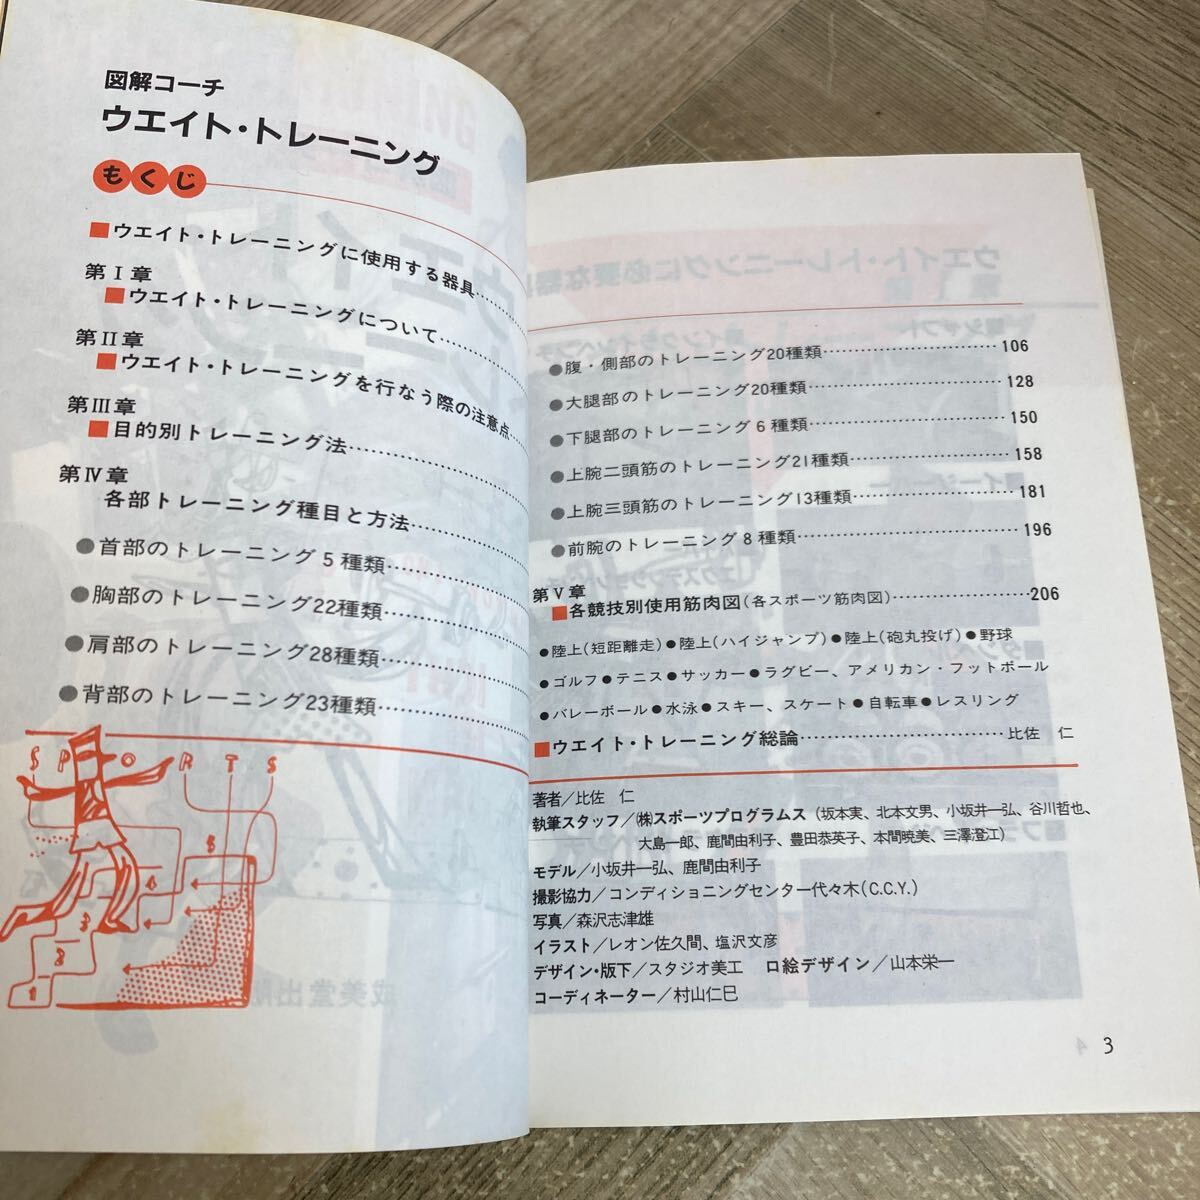 図解コーチ
ウエイト・トレーニング
もくじ
■ウエイト・トレーニングに使用する器具……
第Ⅰ章
■ウエイト・トレーニングについて……
第Ⅱ章
■ウエイト・トレーニングを行なう際の注意点…
第Ⅲ章
■目的別トレーニング法……
第Ⅳ章
各部トレーニング種目と方法……
●首部のトレーニング5種類……
●胸部のトレーニング22種類……
●肩部のトレーニング28種類……
●背部のトレーニング23種類……
SPORTS
●腹・側部のトレーニング20種類……106
●大腿部のトレーニング20種類……128
●下腿部のトレーニング6種類……150
●上腕二頭筋のトレーニング21種類……158
●上腕三頭筋のトレーニング13種類……181
●前腕のトレーニング8種類……196
第Ⅴ章
■各競技別使用筋肉図(各スポーツ筋肉図)……206
●陸上(短距離走)●陸上(ハイジャンプ)●陸上(砲丸投げ)●野球
●ゴルフ●テニス●サッカー●ラグビー、アメリカン・フットボール
●バレーボール●水泳●スキー、スケート●自転車●レスリング
■ウエイト・トレーニング総論……比佐 仁
著者/比佐 仁
執筆スタッフ/㈱スポーツプログラムス(坂本実、北本文男、小坂井一弘、谷川哲也、
大島一郎、鹿間由利子、豊田恭英子、本間暁美、三澤澄江)
モデル/小坂井一弘、鹿間由利子
撮影協力/コンディショニングセンター代々木(C.C.Y.)
写真/森沢志津雄
イラスト/レオン佐久間、塩沢文彦
デザイン・版下/スタジオ美工 口絵デザイン/山本栄一
コーディネーター/村山仁巳
3